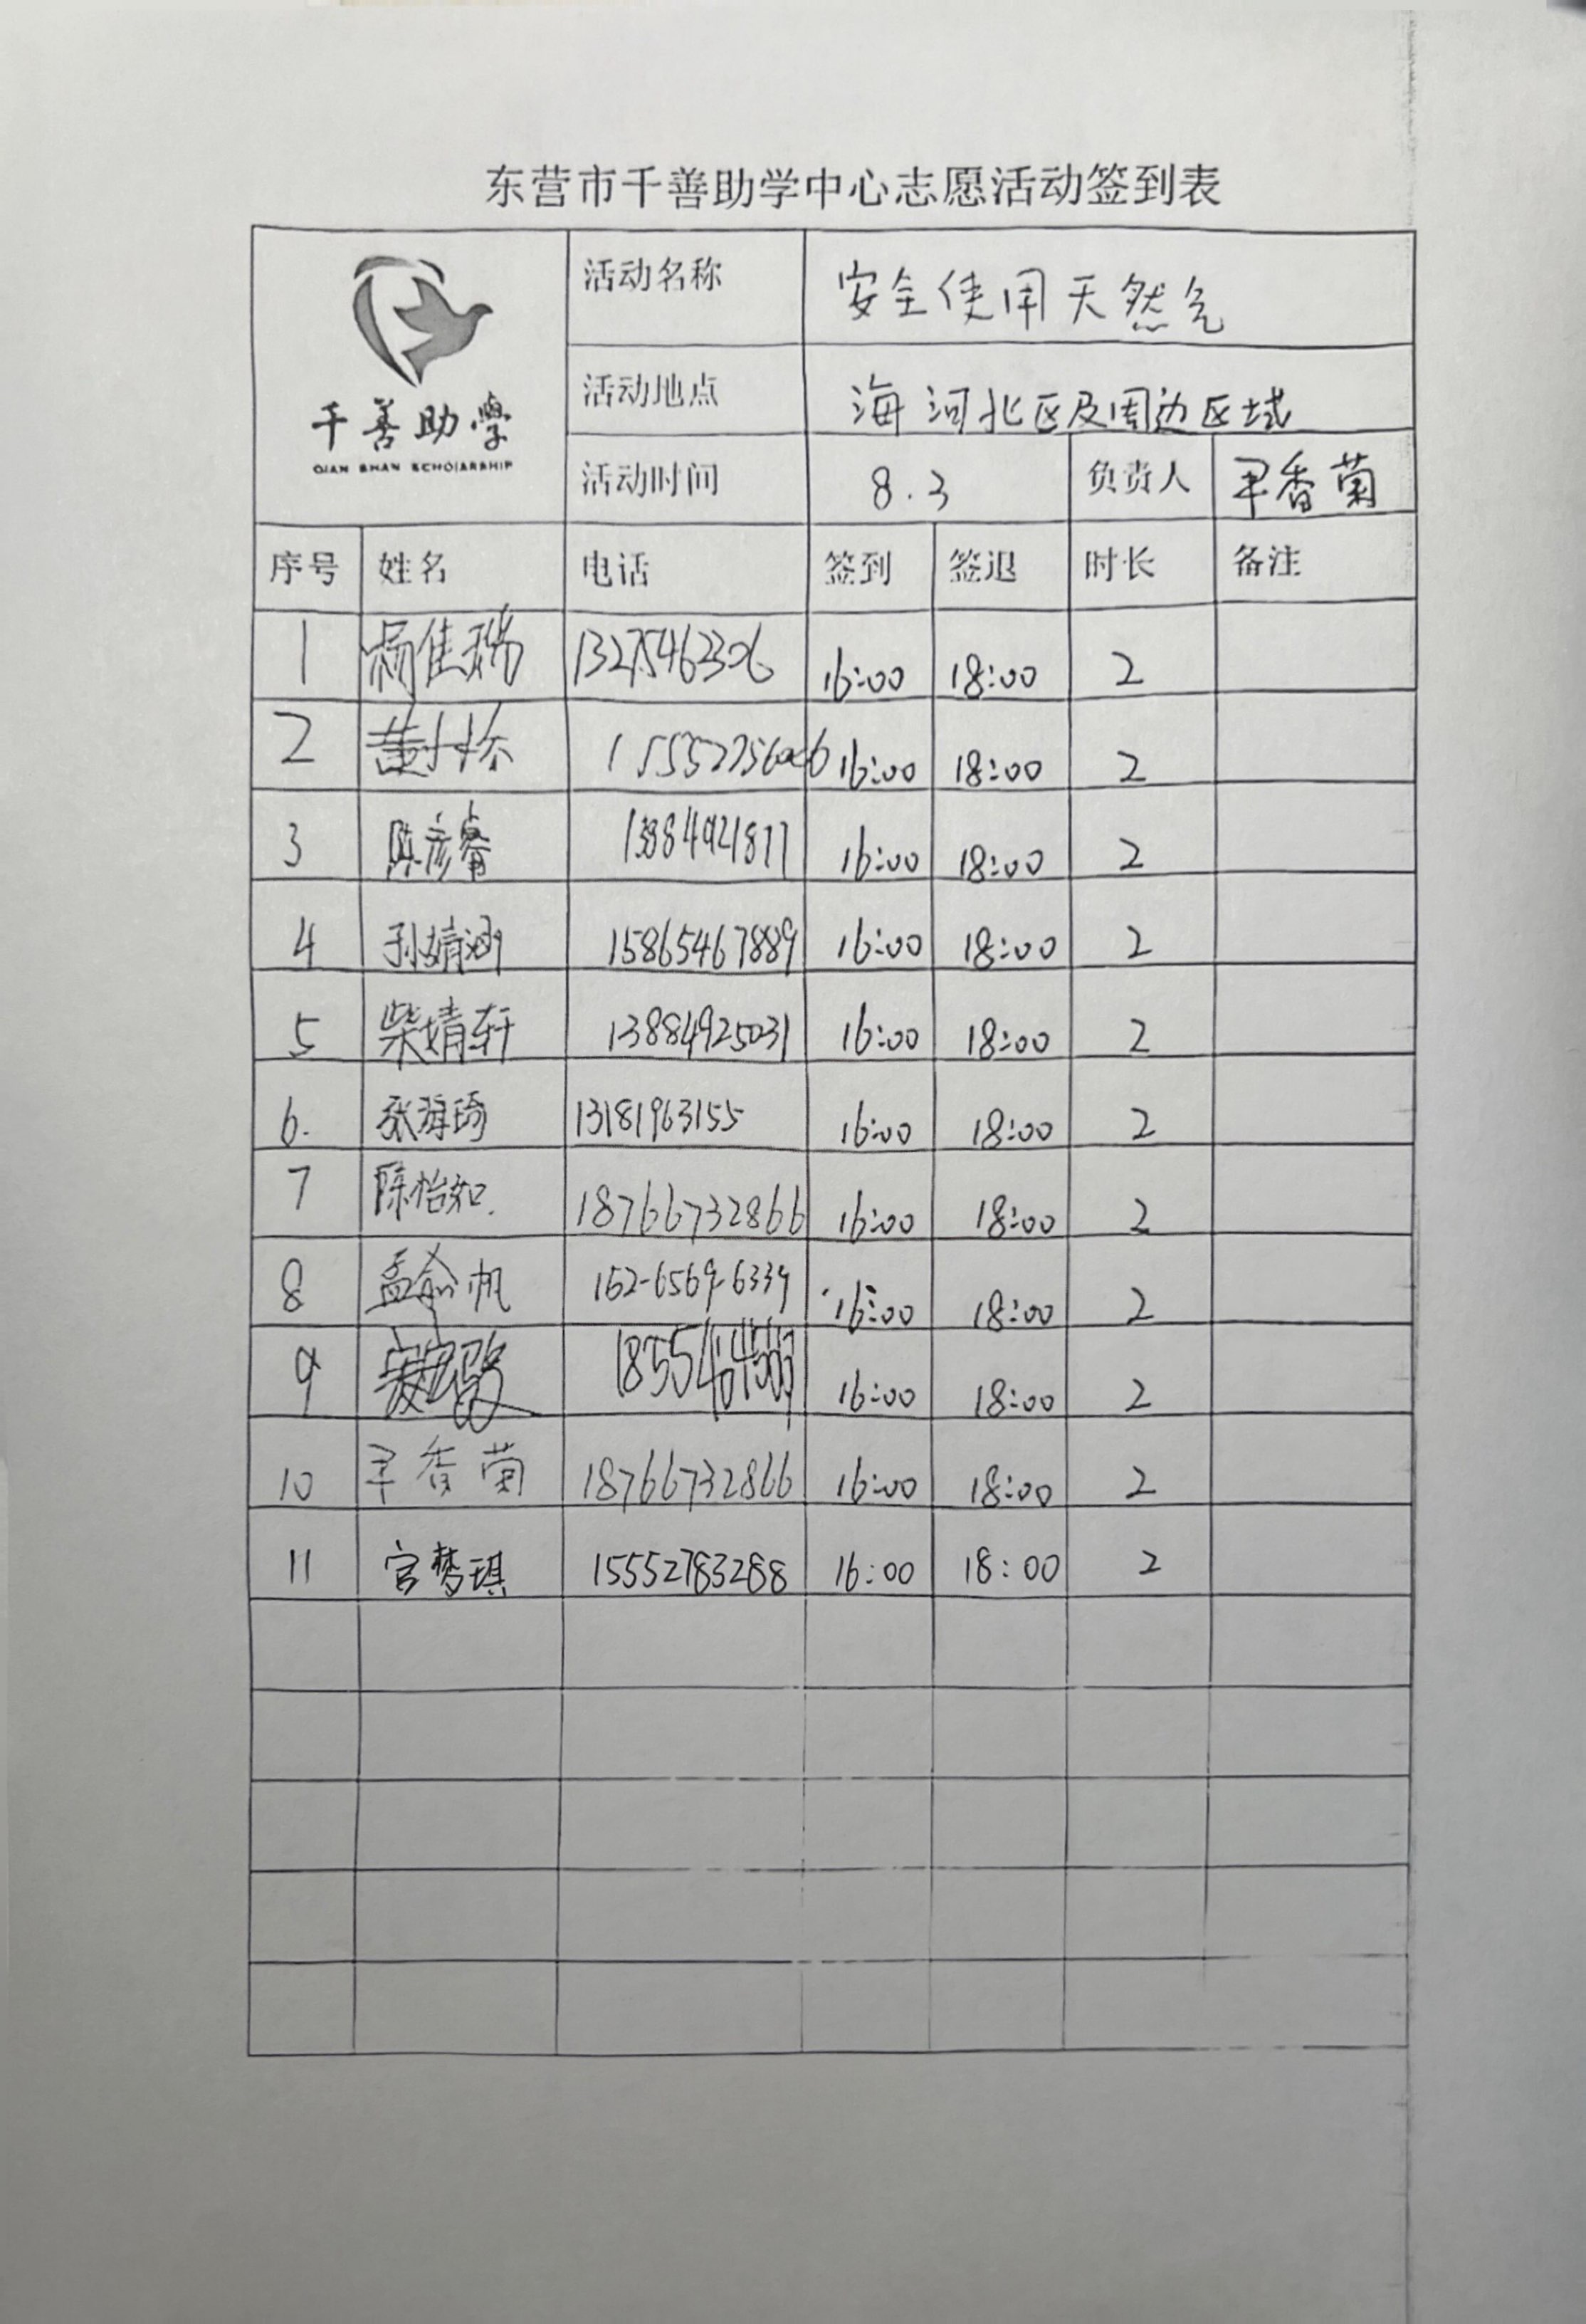 东营市千善助学中心志愿活动签到表
千善助学
QIAN SHAN SCHOLARSHIP
活动名称 安全使用天然气
活动地点 海河北区及周边区域
活动时间 8.3 负责人 尹香菊
序号 姓名 电话 签到 签退 时长 备注
1 杨佳瑞 13275462306 16:00 18:00 2
2 16:00 18:00 2
3 陈彦睿 16:00 18:00 2
4 孙婧涵 15865467889 16:00 18:00 2
5 柴婧轩 13884925031 16:00 18:00 2
6. 13181963155 16:00 18:00 2
7 陈怡如. 18766732866 16:00 18:00 2
8 孟俞帆 152-6569-6339 16:00 18:00 2
9 16:00 18:00 2
10 尹香菊 18766732866 16:00 18:00 2
11 官梦琪 15552783288 16:00 18:00 2